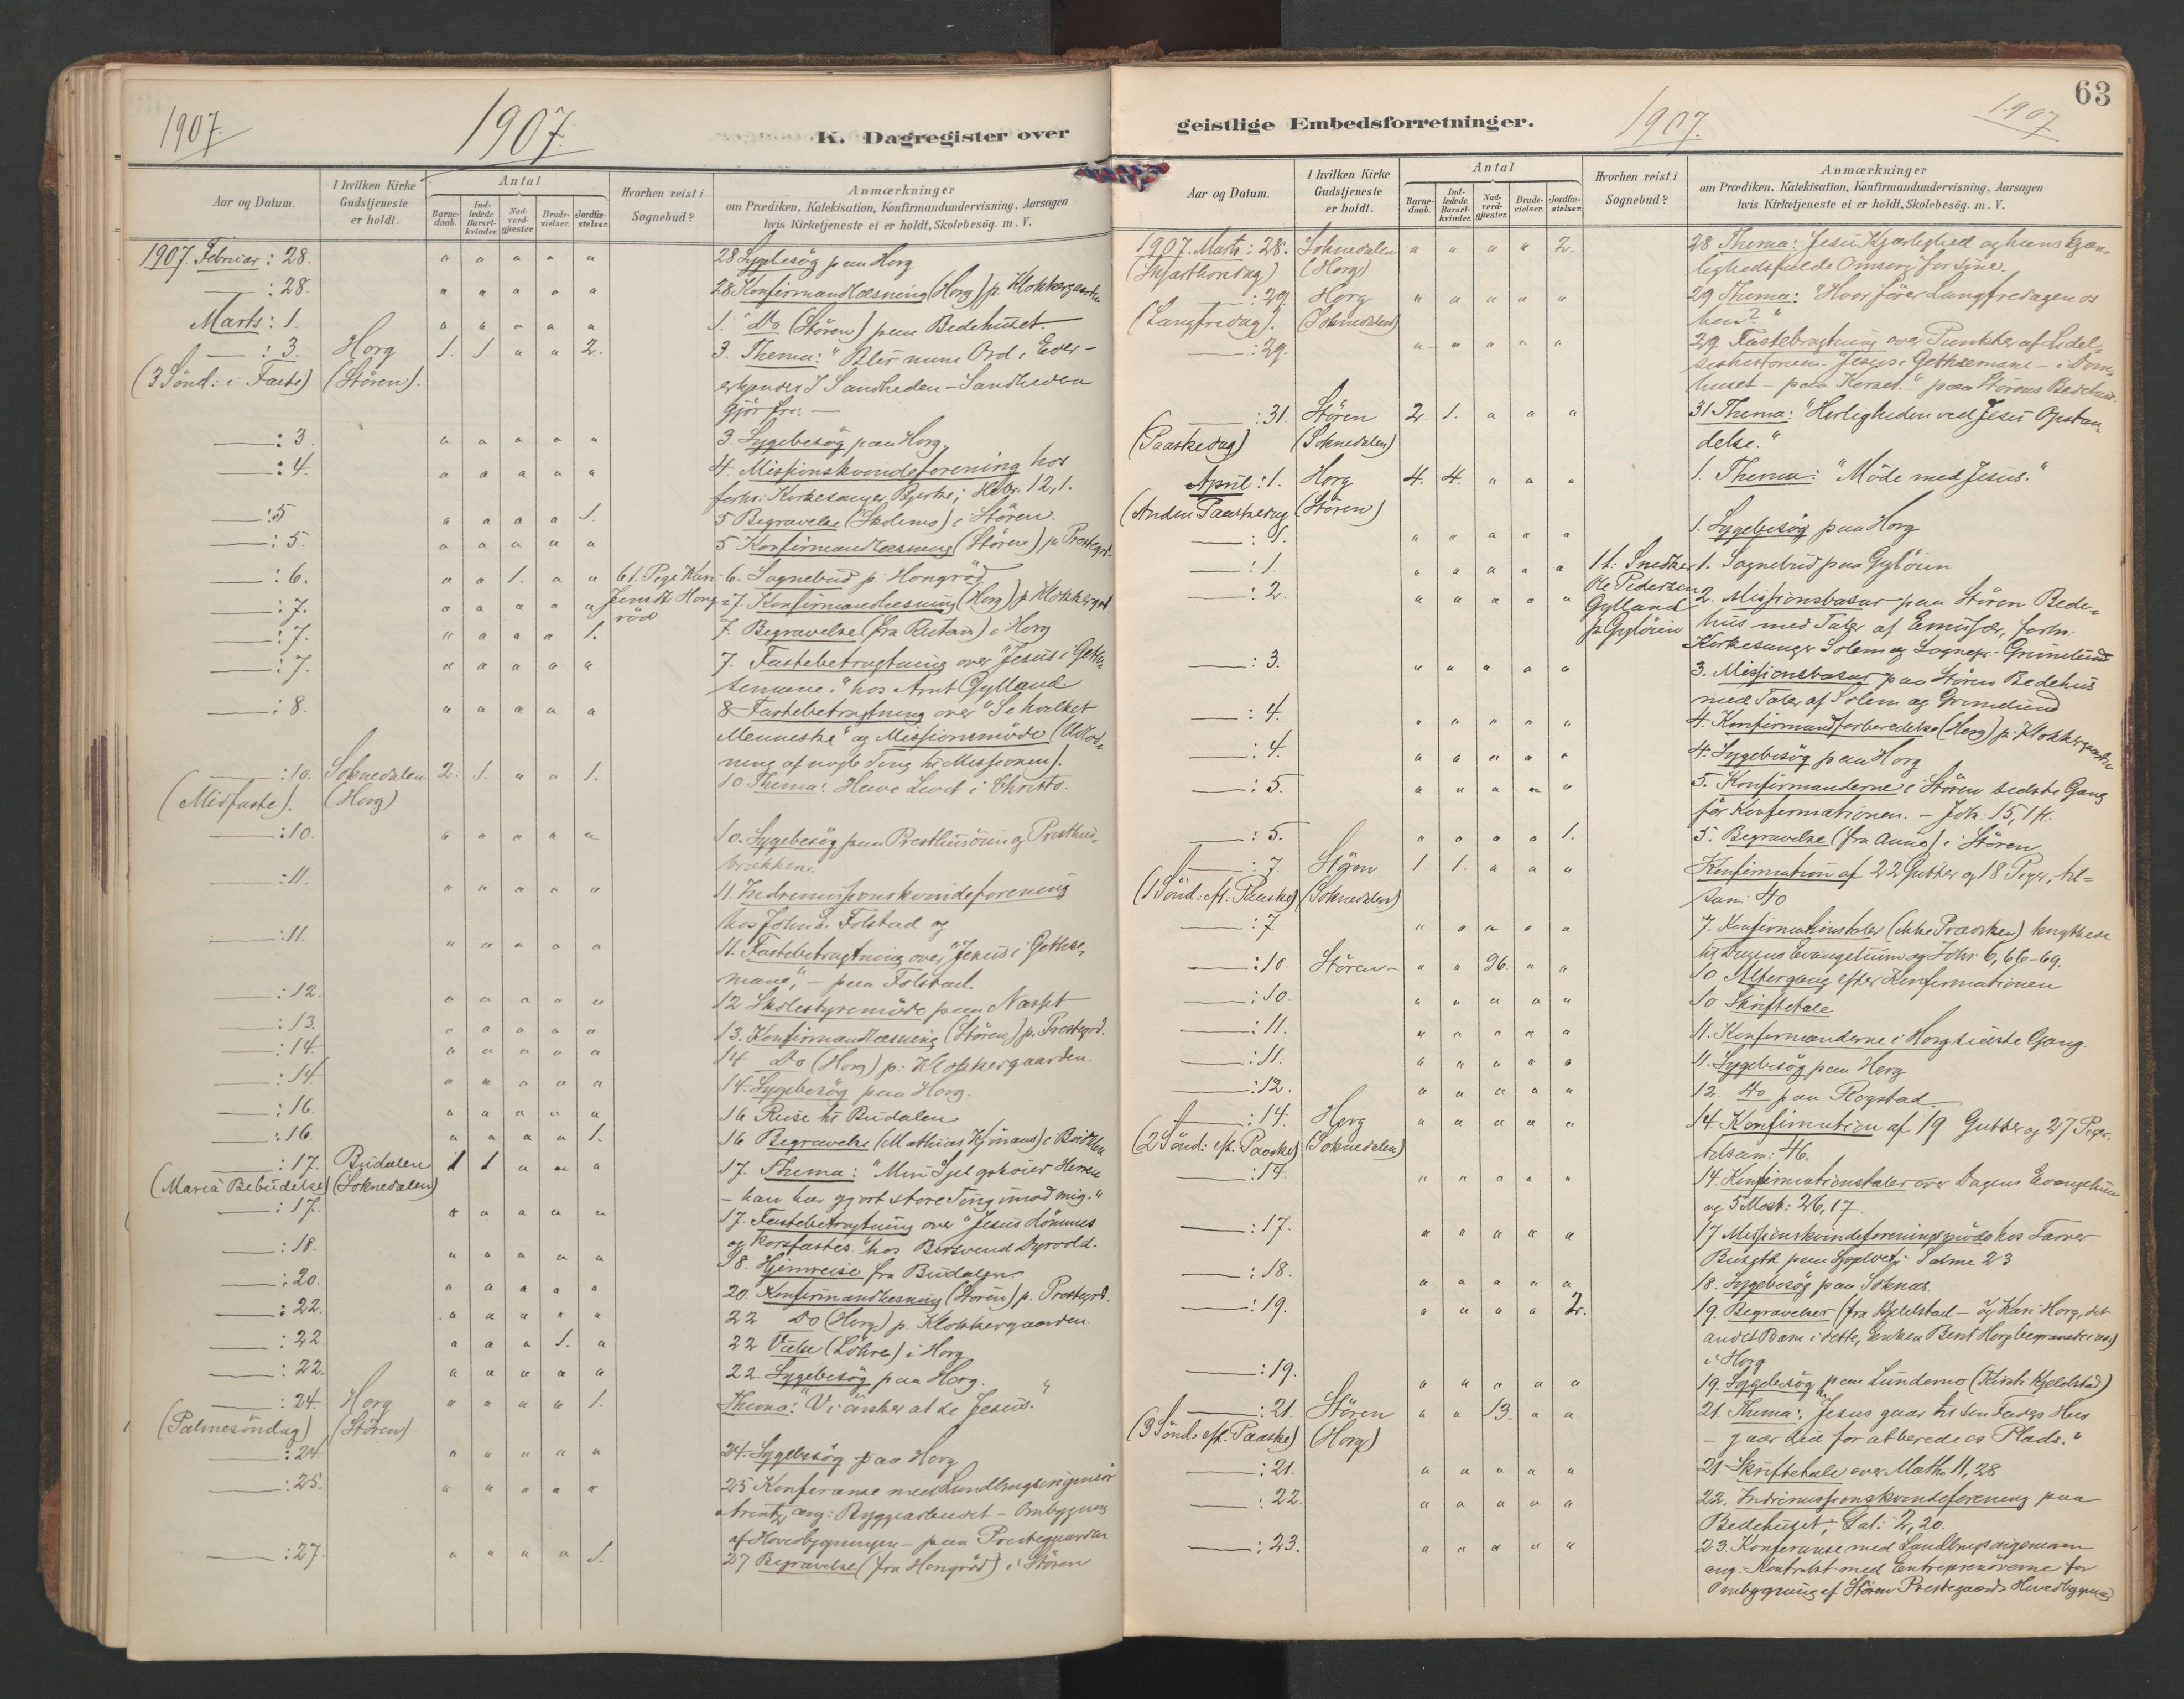 1907.
1907.
K. Dagregister over
Aar og Datum.
I hvilken Kirke Gudstjeneste er holdt.
Antal
Barnedaab.
Indledede Barselkvinder.
Nadverdgjæster.
Brudevielser.
Jordfæstelser.
Hvorhen reist i Sognebud?
Anmærkninger
om Prædiken, Katekisation, Konfirmandundervisning, Aarsagen
hvis Kirketjeneste ei er holdt, Skolebesög. m. V.
1907. Februar: 28. " " " " " 28 Sygebesög paa Horg
: 28. " " " " " 28 Konfirmandlæsning (Horg) p. Klokkergaarden
Marts: 1. " " " " " 1. Do (Stören) paa Bedehuset.
: 3. Horg 1. 1. " " 2. 3. Thema: "Blir mine Ord i Eder –
(3 Sönd: i Faste) (Stören). erkjender I Sandheden – Sandheden
gjör fri. –
: 3. " " " " " 3. Sygebesög paa Horg.
: 4. " " " " " 4. Missionskvindeforening hos
forhv: Kirkesanger Bjerke; Hebr. 12, 1.
: 5 " " " " 1. 5 Begravelse (Skolmo) i Stören.
: 5. " " " " " 5 Konfirmandlæsning (Stören) p. Prestegrd.
: 6. " " 1. " " 6 t. Pige Kari 6. Sognebud p. Hongröd
: 7. " " " " " 7. Konfirmandlæsning (Horg) p. Klokkergrd.
: 7. " " " " 1. 7. Begravelse (fra Rutan) i Horg
: 7. " " " " " 7. Fastebetragtning over "Jesus i Geth-
semane." hos Arnt Gylland.
: 8. " " " " " 8 Fastebetragtning over "Se hvilket
Menneske" og Missionsmöde (Udlod-
ning af nogle Ting til Missionen).
: 10. Soknedalen 2. 1. " " 1. 10 Thema: Have Livet i Christo.
(Midfaste). (Horg)
: 10. " " " " " 10. Sygebesög paa Presthusöien og Presthus-
brækken.
: 11. " " " " " 11. Indremissionskvindeforening
hos John E. Folstad og
: 11. " " " " " 11. Fastebetragtning over "Jesus i Gethse-
mane", – paa Folstad.
: 12. " " " " " 12 Skolestyremöde paa Narset
: 13. " " " " " 13. Konfirmandlæsning (Stören) p. Prestegrd.
: 14. " " " " " 14 Do (Horg) p: Klokkergaarden.
: 14. " " " " " 14. Sygebesög paa Horg.
: 16. " " " " " 16 Reise til Budalen
: 16. " " " " 1. 16 Begravelse (Mathias) i Budalen
: 17. Budalen 1 1 " " " 17. Thema: "Min Sjel ophöier Herren
(Mariä Bebudelse) (Soknedalen) – han har gjort store Ting imod mig."
: 17. " " " " " 17. Fastebetragtning over "Jesus dömmes
og korsfæstes" hos Bersvend Dyrvold.
: 18. " " " " " 18. Hjemreise fra Budalen
: 20. " " " " " 20. Konfirmandlæsning (Stören) p. Prestegrd.
: 22. " " " " " 22 Do (Horg) p. Klokkergaarden.
: 22. " " " 1. " 22 Vielse (Löhre) i Horg
: 22. " " " " " 22. Sygebesög paa Horg.
: 24. Horg " " " " 1. Thema: "Vi önsker at se Jesus."
(Palmesöndag) (Stören)
: 24. " " " " " 24. Sygebesög paa Horg
: 25. " " " " " 25 Konferanse med Landbrugsingeniör
Arentz ang: Byggearbeidet – Ombygning
af Hovedbygningen – paa Prestegaarden
: 27. " " " " 1. 27 Begravelse (fra Hongröd) i Stören
63
geistlige Embedsforretninger.
1907.
1907
Aar og Datum.
I hvilken Kirke Gudstjeneste er holdt.
Antal
Barnedaab.
Indledede Barselkvinder.
Nadverdgjæster.
Brudevielser.
Jordfæstelser.
Hvorhen reist i Sognebud?
Anmærkninger
om Prædiken, Katekisation, Konfirmandundervisning, Aarsagen
hvis Kirketjeneste ei er holdt, Skolebesög. m. V.
1907. Marts: 28. Soknedalen " " " " 2. 28 Thema: Jesu Kjærlighed og hans kjær-
(Skjærthorsdag) (Horg) lighedsfulde Omsorg for sine.
: 29. Horg " " " " " 29 Thema: "Hvor förer Langfredagen os
(Langfredag). (Soknedalen) hen?"
: 29. " " " " " 29 Fastebetragtning over Punkter af Lidel-
seshistorien. Jesus i Gethsemane – i Dom-
huset – paa Korset." paa Störens Bedehus.
: 31. Stören 2. 1. " " " 31 Thema: "Herligheden ved Jesu Opstan-
(Paaskedag) (Soknedalen) delse."
April: 1. Horg 4. 4. " " " 1. Thema: "Möde med Jesus."
(Anden Paaskedag (Stören)
: 1. " " " " " 1. Sygebesög paa Horg
: 1. " " " " " 1 t: Snedker Ole Pedersen Gylland p. Gylöien 1. Sognebud paa Gylöien
: 2. " " " " " 2. Missionsbasar paa Stören Bede-
hus med Taler af Emissær, forhv.
Kirkesanger Solem og Sognepr. Grimelund
: 3. " " " " " 3. Missionsbasar paa Stören Bedehus
med Taler af Solem og Grimelund
: 4. " " " " " 4. Konfirmandforberedelse (Horg) p: Klokkergaarden
: 4. " " " " " 4. Sygebesög paa Horg
: 5. " " " " " 5. Konfirmanderne i Stören sidste Gang
för Konfirmationen. – Joh. 15, 1 ff.
: 5. " " " " 1. 5. Begravelse (fra Aunö) i Stören
: 7. Stören 1. 1. " " " Konfirmation af 22 Gutter og 18 Piger, til-
(1 Sönd: eft. Paaske) (Soknedalen) sam: 40
: 7 " " " " " 7. Konfirmationstaler (ikke Præken) knyttede
til Dagens Evangelium og Johs 6, 66-69.
: 10. Stören – " " 96. " " 10 Altergang efter Konfirmationen
: 10. " " " " " 10 Skriftetale
: 11. " " " " " 11. Konfirmanderne i Horg sidste Gang.
: 11. " " " " " 11. Sygebesög paa Horg
: 12. " " " " " 12. Do paa Rogstad.
: 14. Horg " " " " " 14. Konfirmation af 19 Gutter og 27 Piger.
(2 Sönd: eft. Paaske) (Soknedalen) tilsam: 46.
: 14. " " " " " 14. Konfirmationstaler over Dagens Evangelium
og 5 Moseb: 26, 17.
: 17. " " " " " 17 Missionskvindeforeningsmöde hos Farver
Salme 23
: 18. " " " " " 18. Sygebesög paa Soknæs.
: 19. " " " " 2. 19. Begravelser (fra Kjeldstad – og Kari Horg, det
andet Barn i dette, Enken Berit Horg begravet)
i Horg
: 19. " " " " " 19. Sygebesög paa Lundemo (Kirsti Kjeldstad)
: 21. Stören " " 13. " " 21. Thema: "Jesus gaar til sin Faders Hus
(3 Sönd: eft. Paaske) (Horg) – gaar did for at berede os Plads."
: 21. " " " " " 21. Skriftetale over Math: 11, 28
: 22. " " " " " 22. Indremissionskvindeforening paa
Bedehuset; Gal: 2, 20.
: 23. " " " " " 23. Konferanse med Landbrugsingeniören
ang. Kontrakt med Entreprenörerne for
Ombygning af Stören Prestegaards Hovedbygning